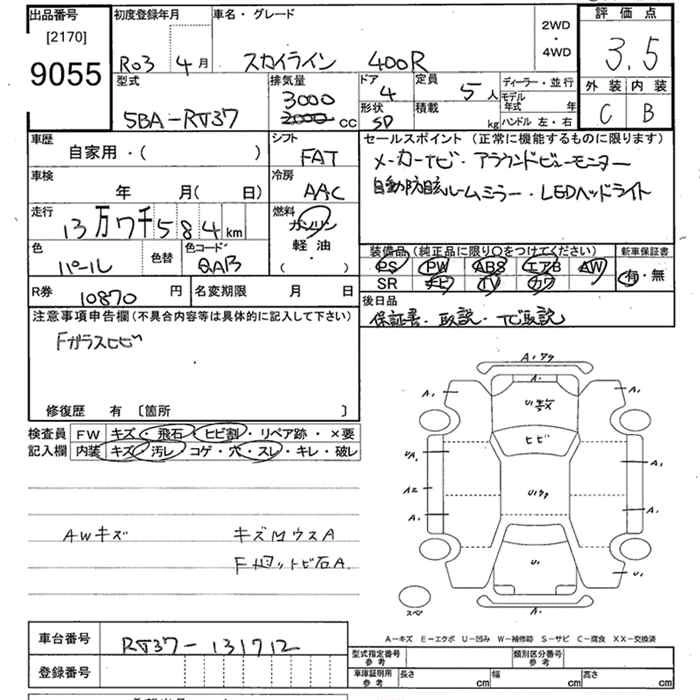 出品番号 初度登録年月 車名・グレード 2WD・4WD 評価点
[2170]
9055 R03 4月 スカイライン 400R 3.5
型式 排気量 ドア 定員 ディーラー・並行 外装 内装
5BA-RV37 3000 2000 CC 4 5人 モデル年式 年 C B
形状 積載 kg ハンドル 左・右
5D
車歴 シフト セールスポイント (正常に機能するものに限ります)
自家用・( ) FAT メーカーナビ・アラウンドビューモニター
車検 冷房 自動防眩ルームミラー・LEDヘッドライト
年 月( 日) AAC
走行 燃料
13万7千584km ガソリン
軽油
( ・ )
色 色替 色コード 装備品(純正品に限り○をつけてください) 新車保証書
パール QAB PS PW ABS エアB AW 有・無
SR ナビ TV カワ
R券 10870円 名変期限 月 日 後日品
注意事項申告欄(不具合内容等は具体的に記入して下さい) 保証書・取説・ナビ取説
Fガラスヒビ
修復歴 有 [箇所 ]
検査員 FW キズ・飛石・ヒビ割・リペア跡・×要
記入欄 内装 キズ・汚レ・コゲ・穴・スレ・キレ・破レ
AWキズ キズ凹ウスA
石A
A・
A・ A・ A・
U1
ヒビ
A・ A・
A2
A・ A・
U・
U・
スペ
A-キズ E-エクボ U-凹み W-補修跡 S-サビ C-腐食 XX-交換済
車台番号 RV37-131712
登録番号
型式指定番号 参考 類別区分番号 参考
車庫証明用 参考 長さ cm 幅 cm 高さ cm